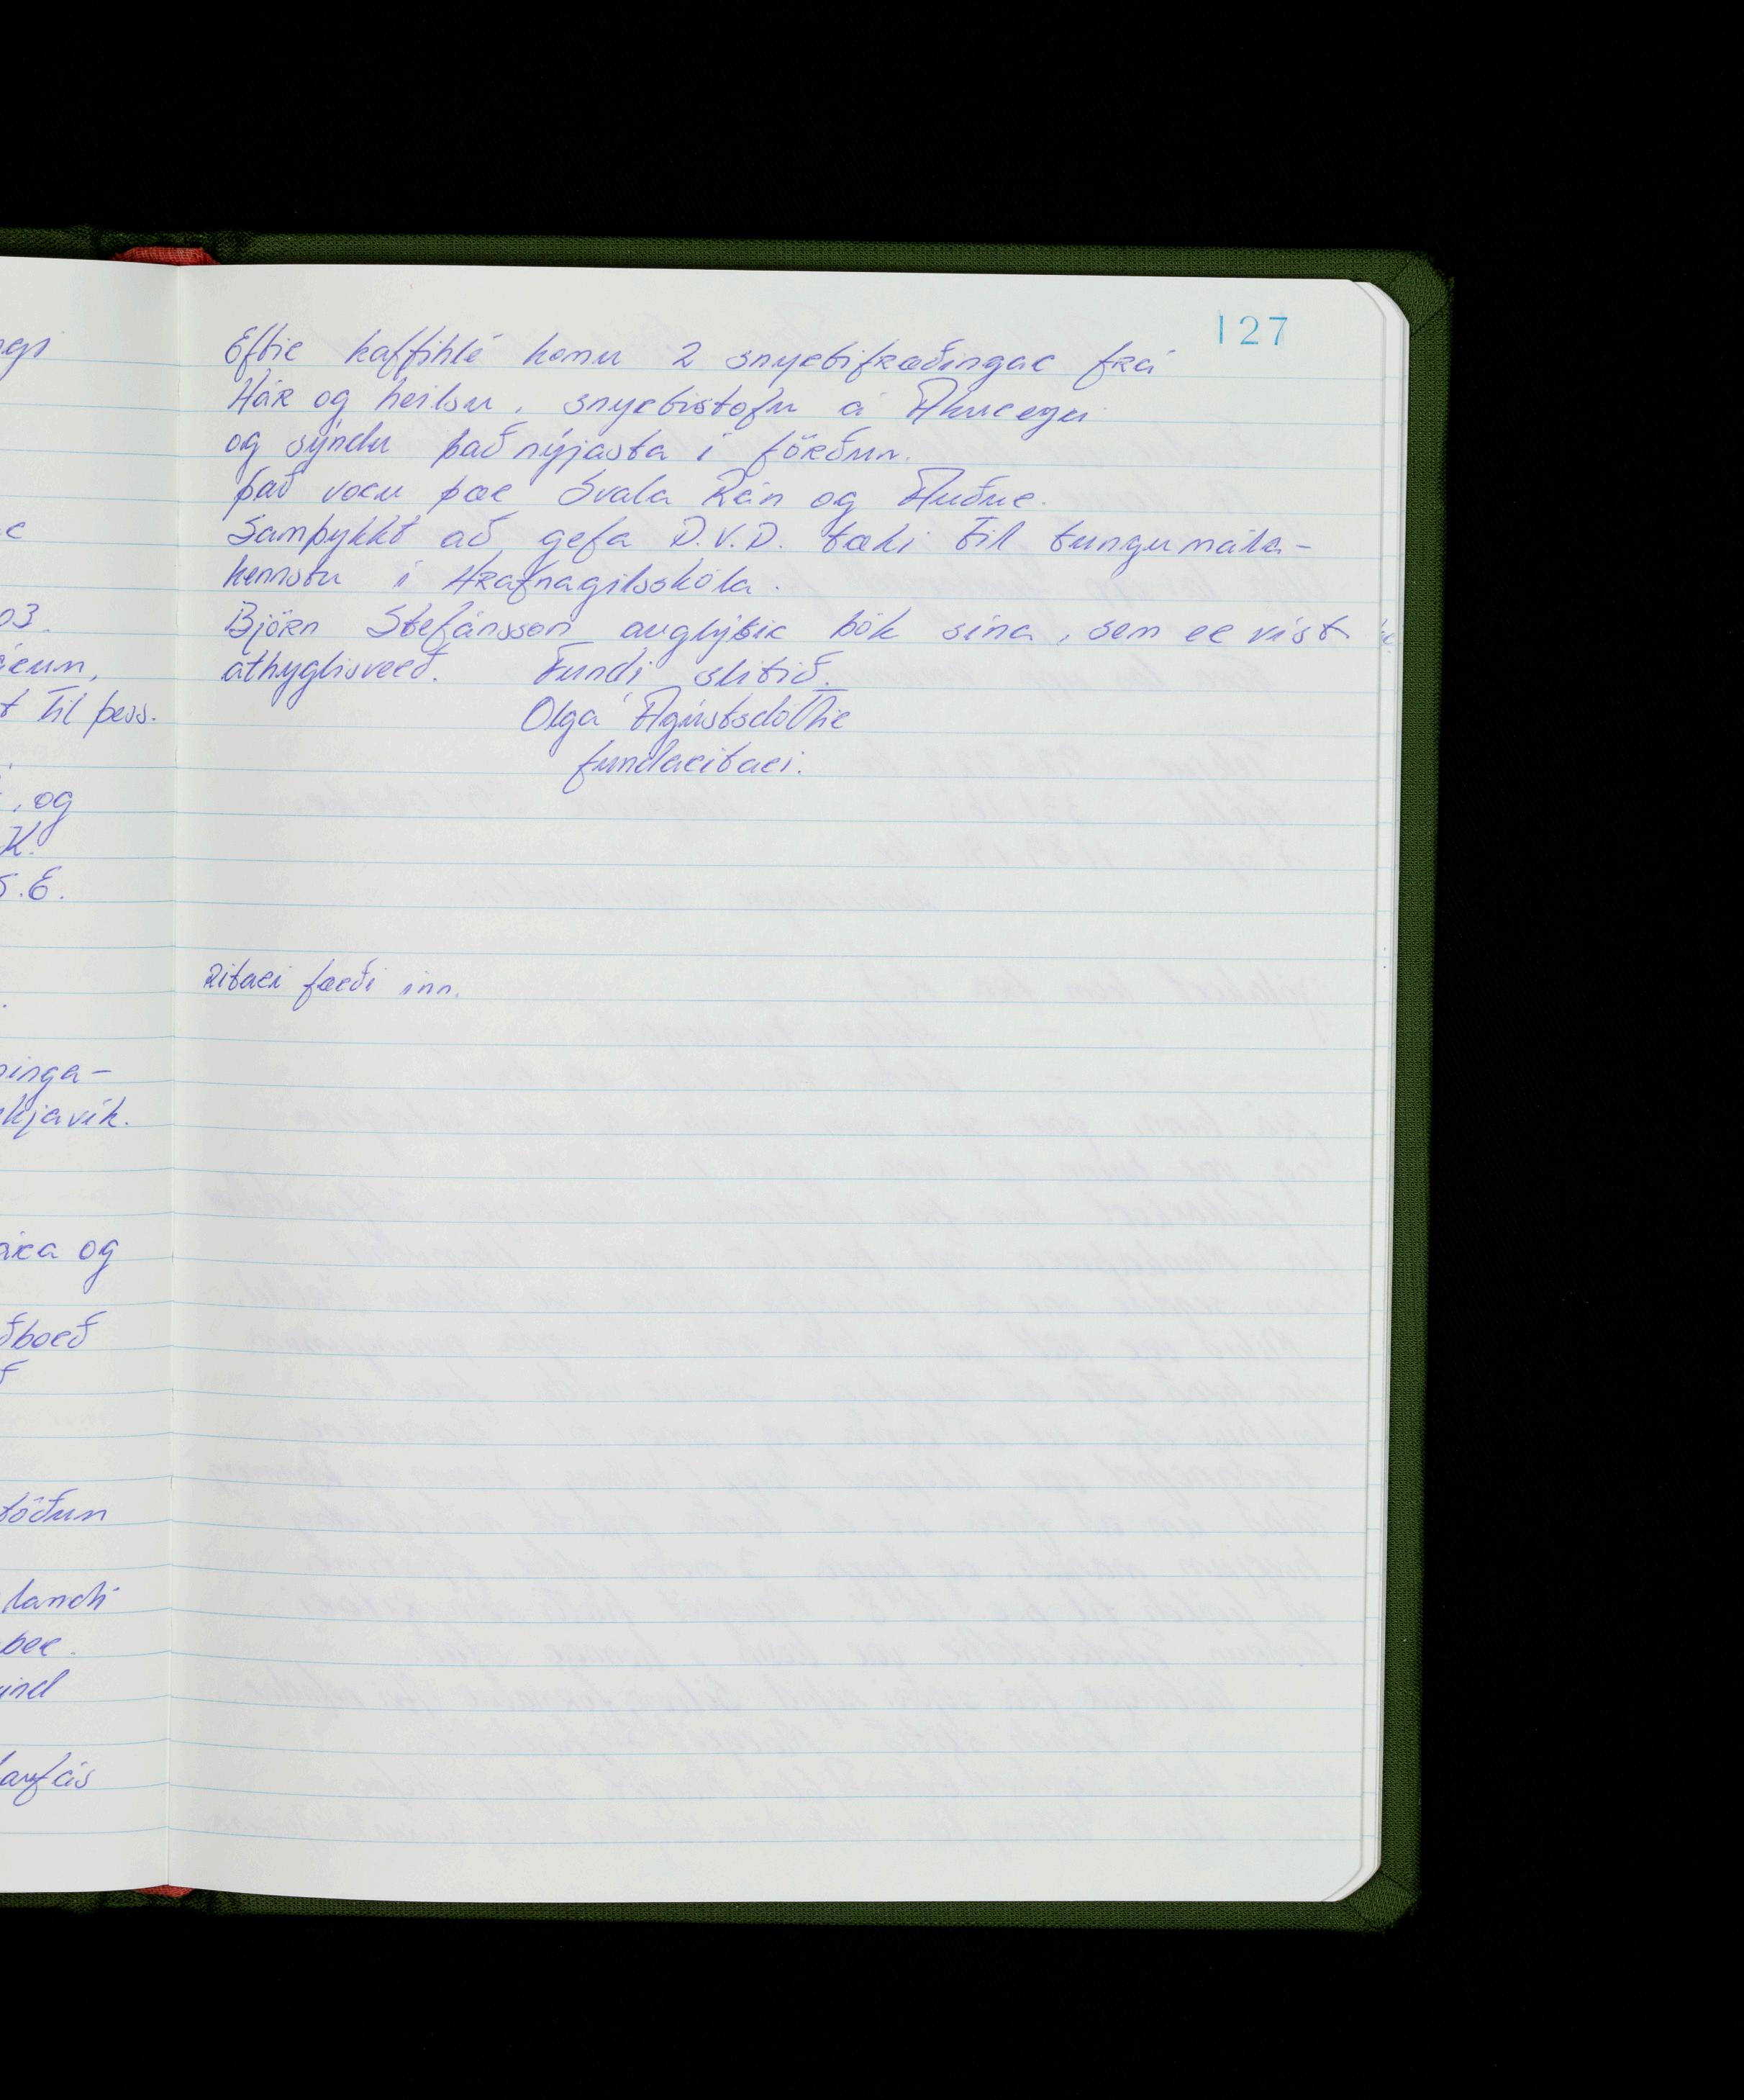 127
Eftir kaffihlé komu 2 snyrtifræðingar frá
Hár og heilsu, snyrtistofu á Akureyri
og sýndu það nýjasta í förðun.
Það voru þær Svala Rán og Auður.
Samþykkt að gefa D.V.D. tæki til tungumála-
kennslu í Hrafnagilsskóla.
Björn Stefánsson auglýsir bók sína, sem er víst
athyglisverð. Fundi slitið.
Olga Ágústsdóttir
fundarritari.
Ritari færði inn.
03.
t til þess.
, og
K.
S.E.
inga-
kjavík.
og
landi